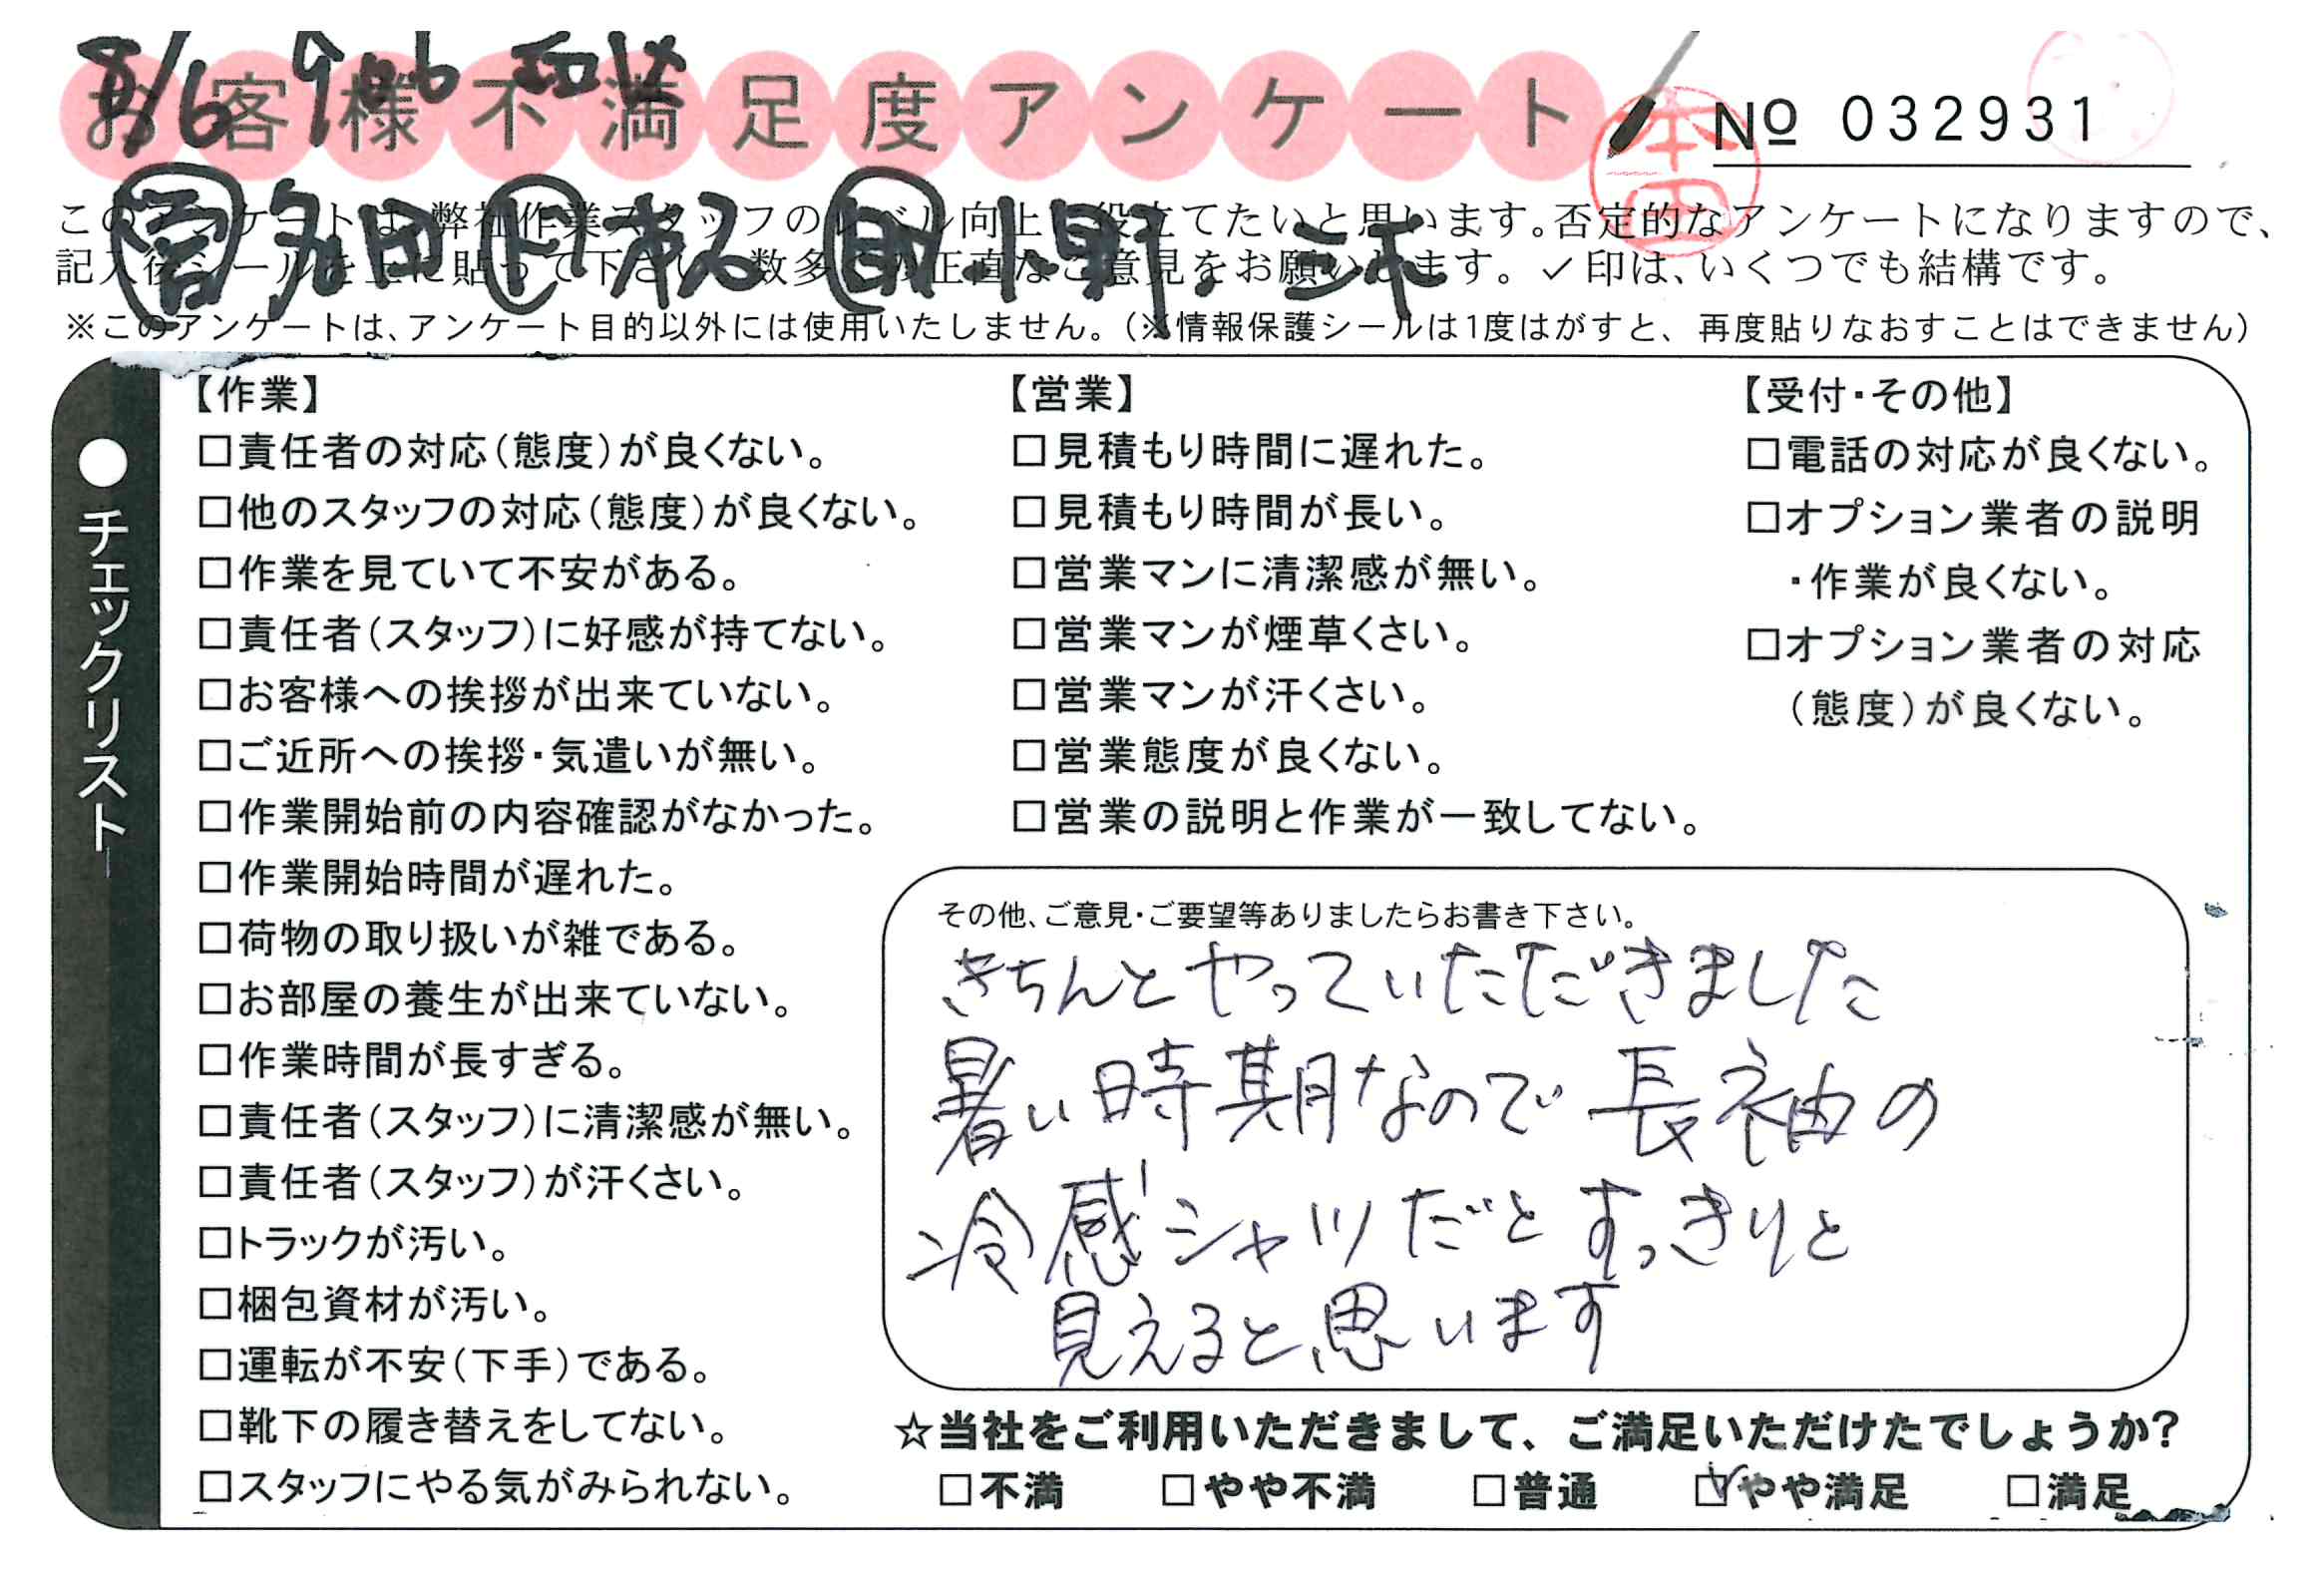 8/6
お客様不満足度アンケート
本田
No 032931
このアンケートは、弊社作業スタッフのレベル向上に役立てたいと思います。否定的なアンケートになりますので、
記入後シールを上に貼って下さい。数多くの正直なご意見をお願いします。✓印は、いくつでも結構です。
営 多田 ド 助 小野、三木
※このアンケートは、アンケート目的以外には使用いたしません。（※情報保護シールは1度はがすと、再度貼りなおすことはできません）
●チェックリスト
【作業】
□責任者の対応（態度）が良くない。
□他のスタッフの対応（態度）が良くない。
□作業を見ていて不安がある。
□責任者（スタッフ）に好感が持てない。
□お客様への挨拶が出来ていない。
□ご近所への挨拶・気遣いが無い。
□作業開始前の内容確認がなかった。
□作業開始時間が遅れた。
□荷物の取り扱いが雑である。
□お部屋の養生が出来ていない。
□作業時間が長すぎる。
□責任者（スタッフ）に清潔感が無い。
□責任者（スタッフ）が汗くさい。
□トラックが汚い。
□梱包資材が汚い。
□運転が不安（下手）である。
□靴下の履き替えをしてない。
□スタッフにやる気がみられない。
【営業】
□見積もり時間に遅れた。
□見積もり時間が長い。
□営業マンに清潔感が無い。
□営業マンが煙草くさい。
□営業マンが汗くさい。
□営業態度が良くない。
□営業の説明と作業が一致してない。
【受付・その他】
□電話の対応が良くない。
□オプション業者の説明
・作業が良くない。
□オプション業者の対応
（態度）が良くない。
その他、ご意見・ご要望等ありましたらお書き下さい。
きちんとやっていただきました
暑い時期なので長袖の
冷感シャツだとすっきりと
見えると思います
☆当社をご利用いただきまして、ご満足いただけたでしょうか？
□不満 □やや不満 □普通 ☑やや満足 □満足